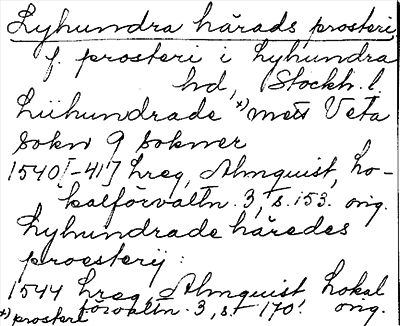 Lyhundra härads prosteri,
f. prosteri i Lyhundra
hd, Stockh. l.
Liihundrade *) mett Veta
Sokn 9 Sokner
1540[-41] hreg, Almquist, Lo-
kalförvaltn. 3, s. 153. orig.
Lyhundrade häredes
proesterij:
1544 hreg, Almquist Lokal
förvaltn. 3, s 170. orig.
*) prosteri